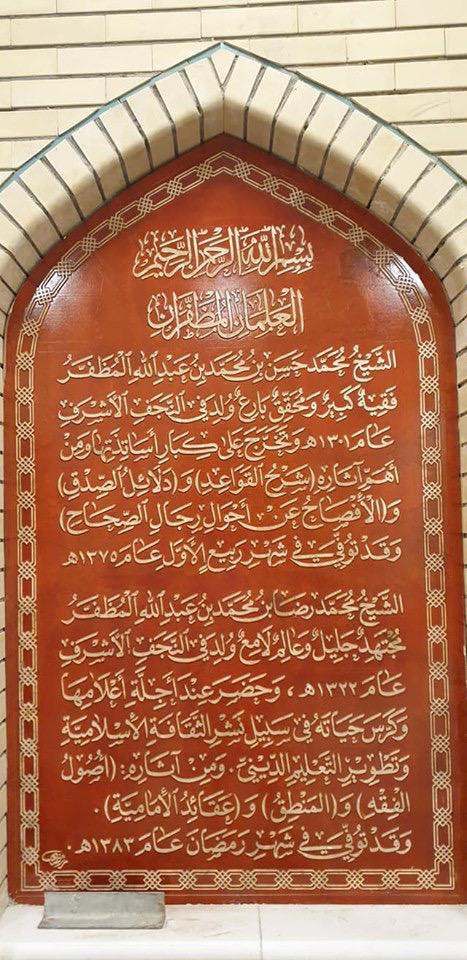 بسم الله الرحمن الرحيم
العلمان المظفران
الشيخ محمد حسن بن محمد بن عبد الله المظفر
فقيه كبير ومحقق بارع ولد في النجف الأشرف
عام ١٣٠١هـ وتخرج على كبار أساتذتها ومن
أهم آثاره (شرح القواعد) و (دلائل الصدق)
و(الأفصاح عن أحوال رجال الصحاح)
وقد توفي في شهر ربيع الأول عام ١٣٧٥هـ
الشيخ محمد رضا بن محمد بن عبد الله المظفر
مجتهد جليل وعالم لامع ولد في النجف الأشرف
عام ١٣٢٢هـ ، وحضر عند أجلة أعلامها
وكرس حياته في سبيل نشر الثقافة الأسلامية
وتطوير التعليم الديني . ومن آثاره: (أصول
الفقه) و (المنطق) و (عقائد الأمامية) .
وقد توفي في شهر رمضان عام ١٣٨٣هـ .